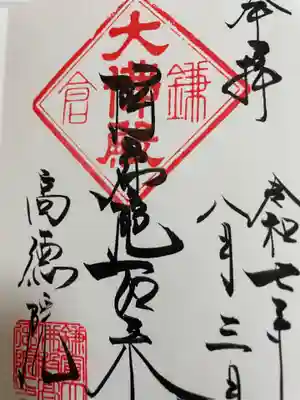 奉拝
令和七年
八月三日
大佛殿
鎌倉
阿弥陀如来
高德院